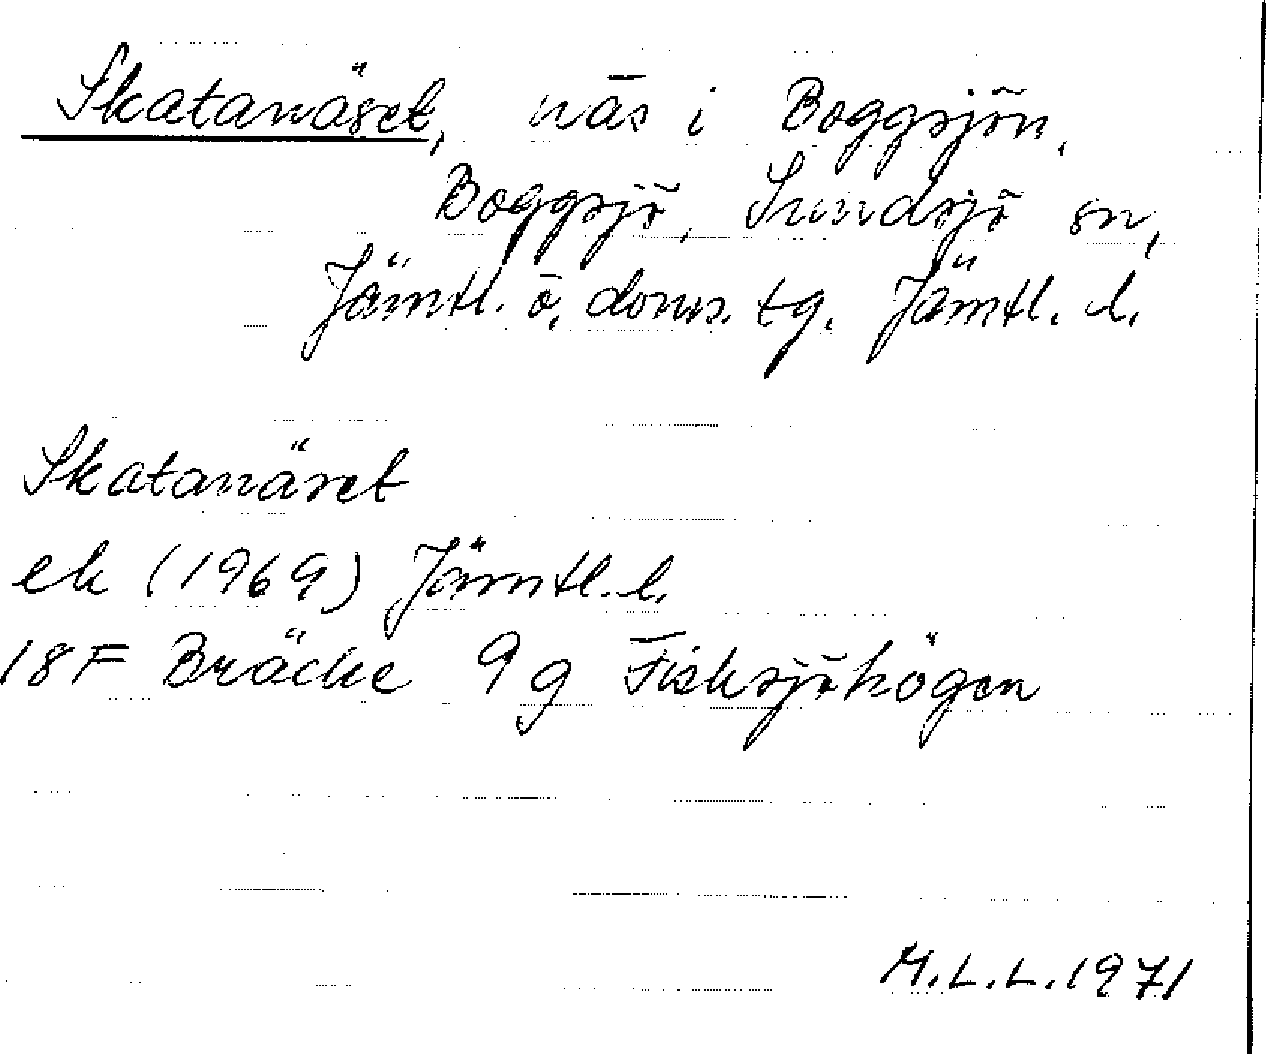 Skatanäset, näs i Boggsjön,
Boggsjö, Sundsjö sn,
Jämtl. ö. doms. tg. Jämtl. l.
Skatanäset
ek (1969) Jämtl. l.
18F Bräcke 9g Fisksjöhögen
M.L.L. 1971